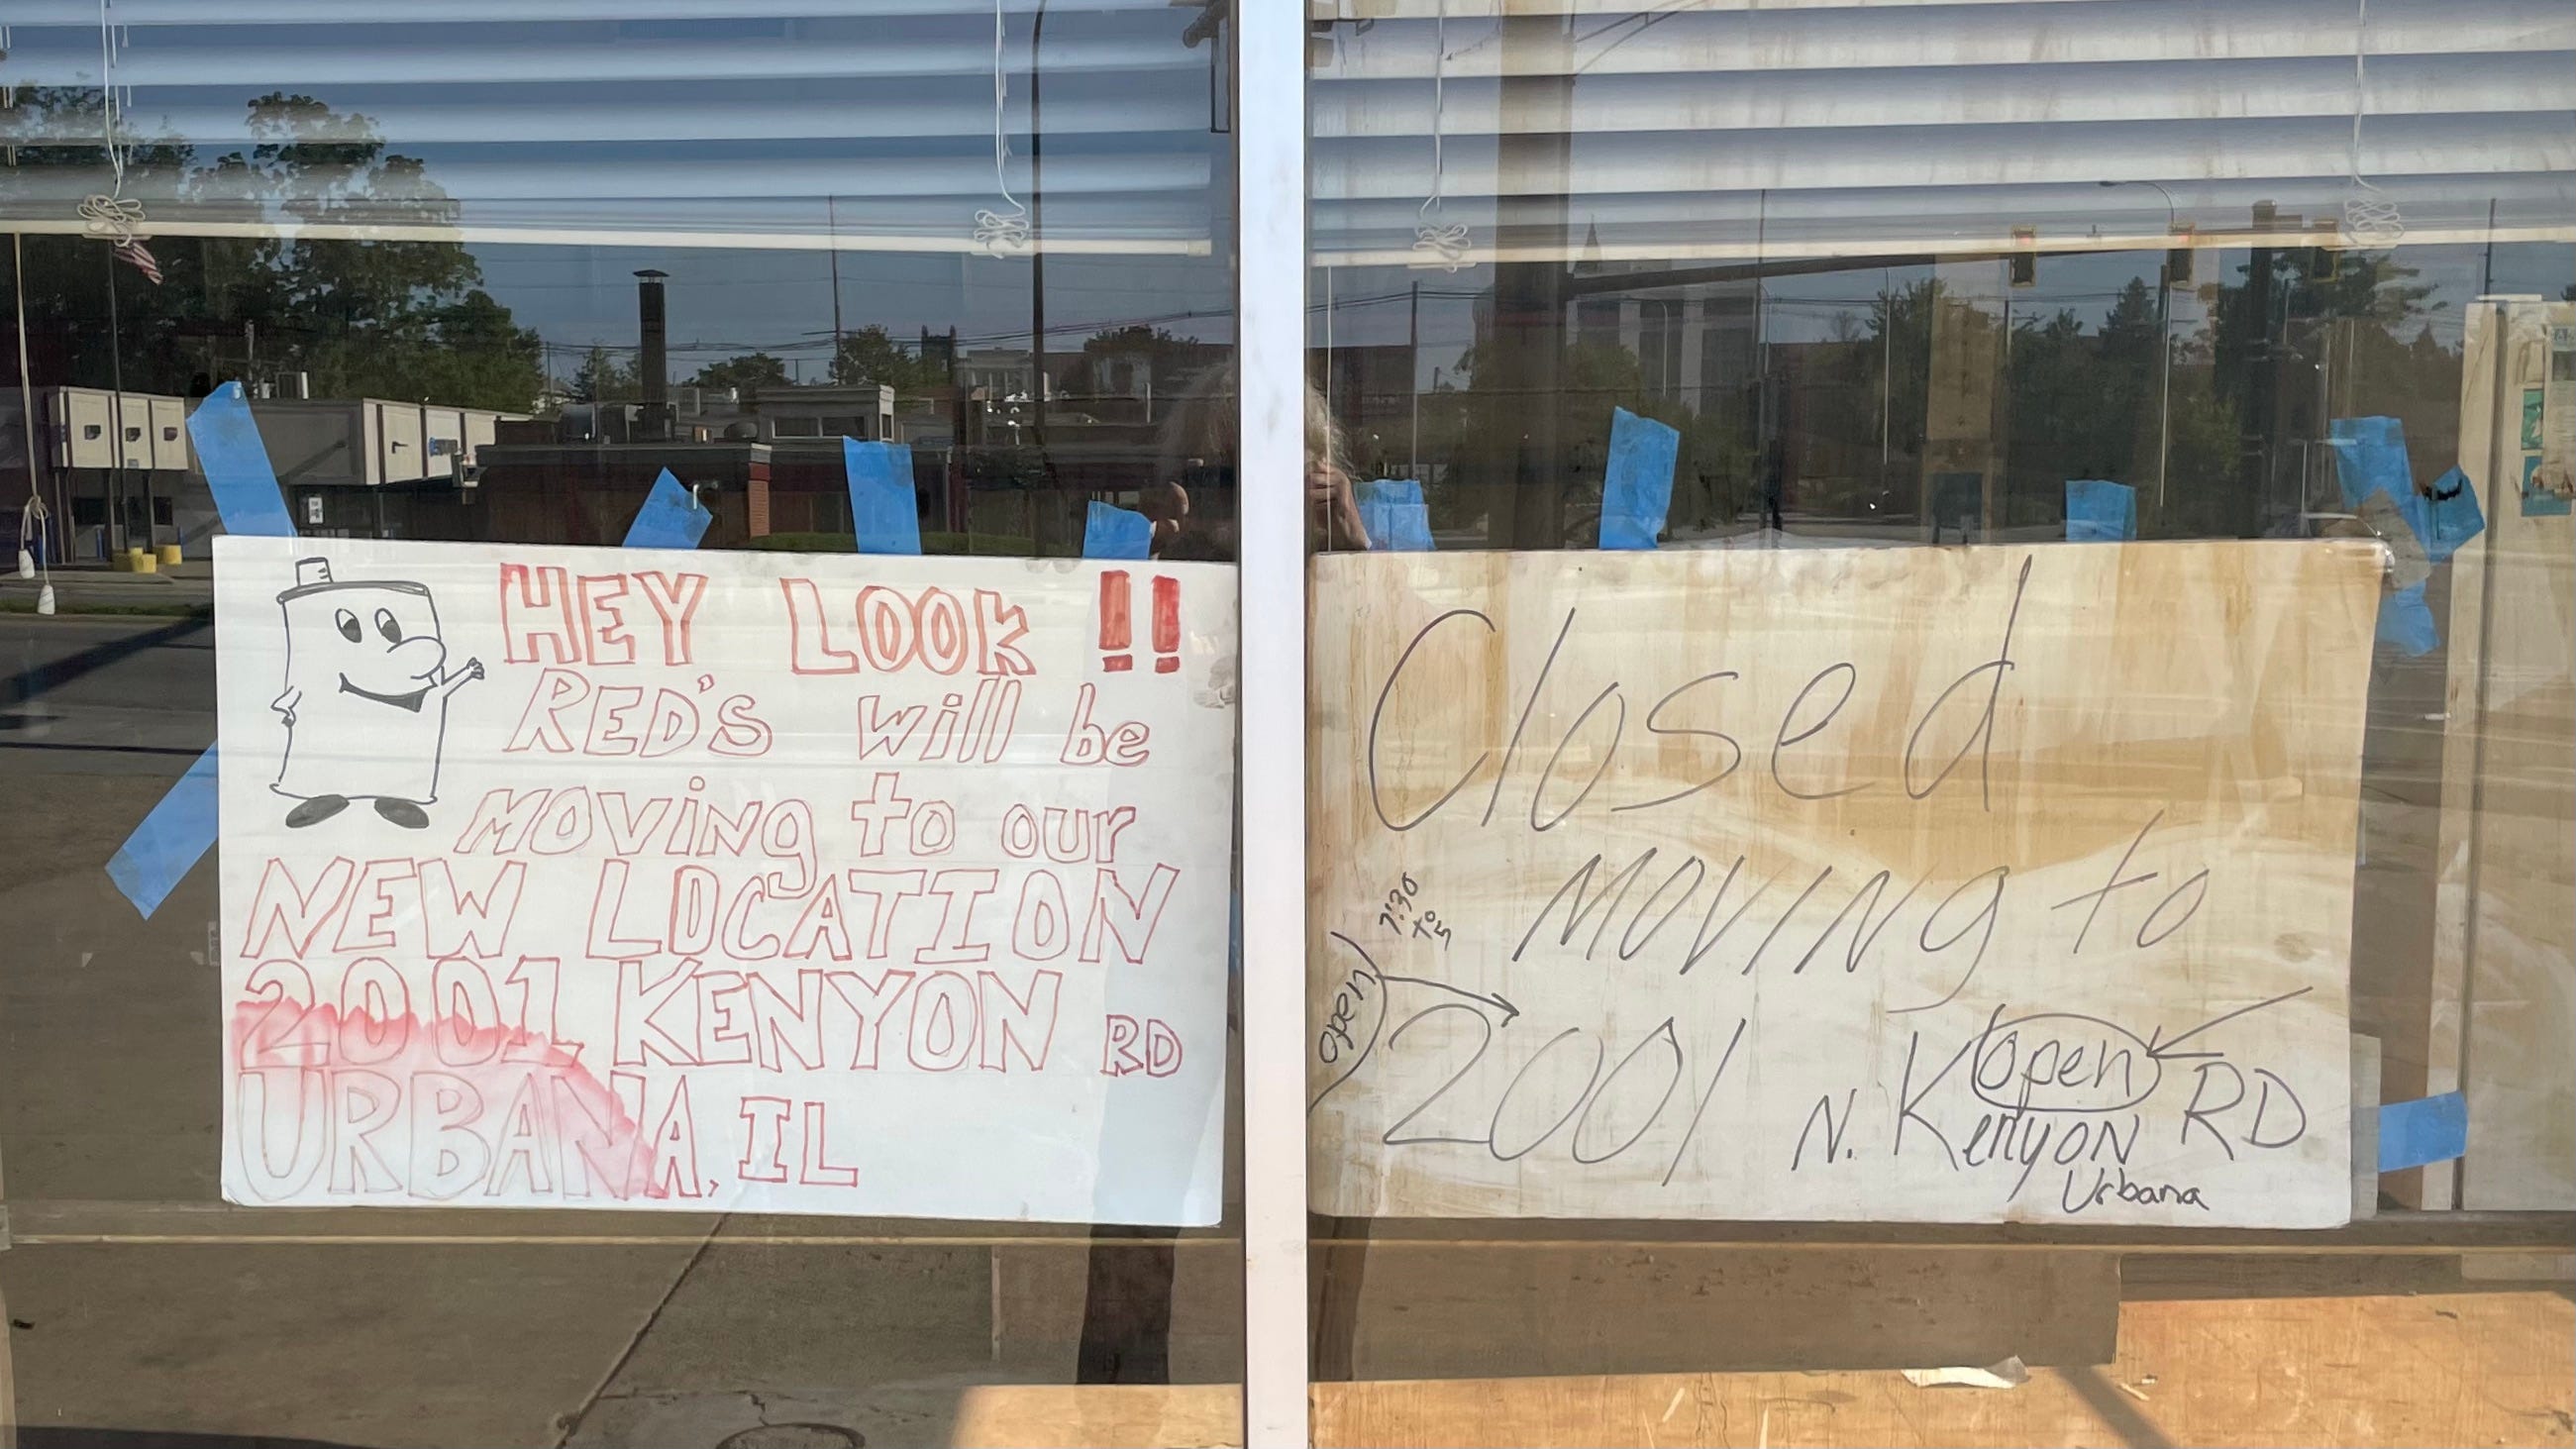 HEY LOOK !!
RED'S will be
moving to our
NEW LOCATION
2001 KENYON RD
URBANA, IL
Closed
MOVING to
7:30
to
5
open
2001 N. Kenyon RD
open
Urbana